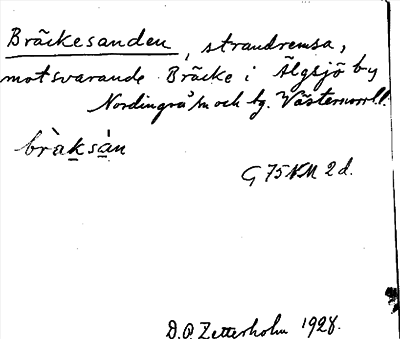 Bräckesanden, strandremsa,
motsvarande Bräcke i Älgsjö by
Nordingrå sn och tg. Västernorrl.l.
bràksán
G 75 NM 2d.
D.O. Zetterholm 1928.